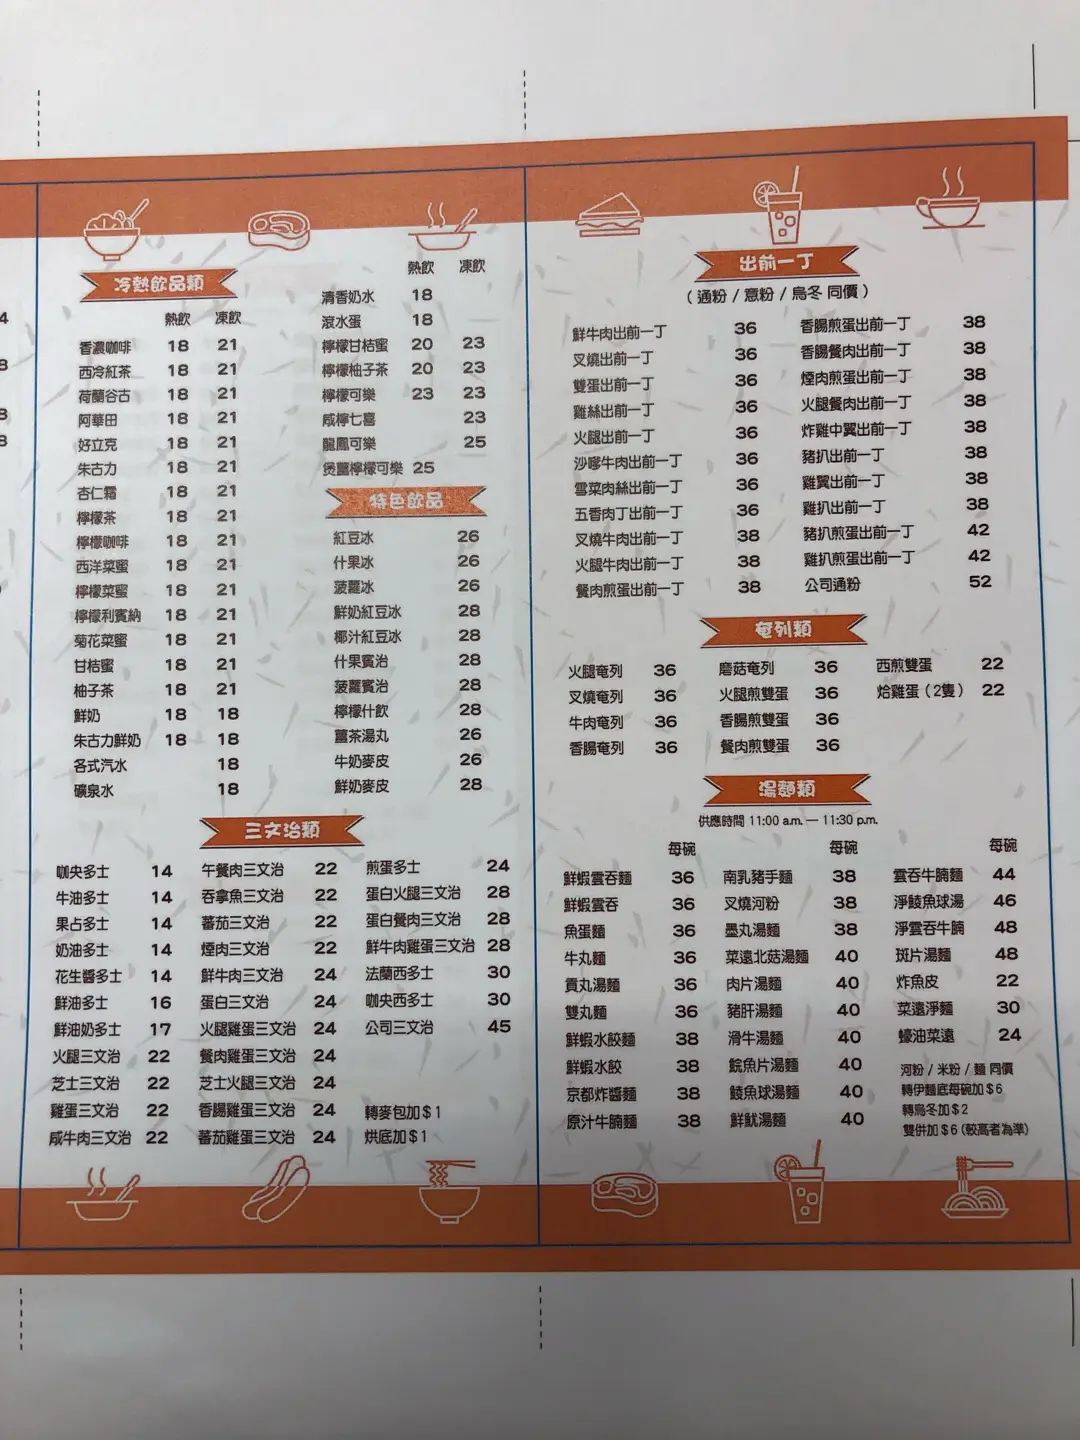 4
8
8
8
冷熱飲品類
熱飲 凍飲
香濃咖啡 18 21
西冷紅茶 18 21
荷蘭谷古 18 21
阿華田 18 21
好立克 18 21
朱古力 18 21
杏仁霜 18 21
檸檬茶 18 21
檸檬咖啡 18 21
西洋菜蜜 18 21
檸檬菜蜜 18 21
檸檬利賓納 18 21
菊花菜蜜 18 21
甘桔蜜 18 21
柚子茶 18 21
鮮奶 18 18
朱古力鮮奶 18 18
各式汽水 18
礦泉水 18
熱飲 凍飲
清香奶水 18
滾水蛋 18
檸檬甘桔蜜 20 23
檸檬柚子茶 20 23
檸檬可樂 23 23
咸檸七喜 23
龍鳳可樂 25
煲薑檸檬可樂 25
特色飲品
紅豆冰 26
什果冰 26
菠蘿冰 26
鮮奶紅豆冰 28
椰汁紅豆冰 28
什果賓治 28
菠蘿賓治 28
檸檬什飲 28
薑茶湯丸 26
牛奶麥皮 26
鮮奶麥皮 28
三文治類
咖央多士 14
牛油多士 14
果占多士 14
奶油多士 14
花生醬多士 14
鮮油多士 16
鮮油奶多士 17
火腿三文治 22
芝士三文治 22
雞蛋三文治 22
咸牛肉三文治 22
午餐肉三文治 22
吞拿魚三文治 22
蕃茄三文治 22
煙肉三文治 22
鮮牛肉三文治 24
蛋白三文治 24
火腿雞蛋三文治 24
餐肉雞蛋三文治 24
芝士火腿三文治 24
香腸雞蛋三文治 24
蕃茄雞蛋三文治 24
煎蛋多士 24
蛋白火腿三文治 28
蛋白餐肉三文治 28
鮮牛肉雞蛋三文治 28
法蘭西多士 30
咖央西多士 30
公司三文治 45
轉麥包加$1
烘底加$1
出前一丁
(通粉 / 意粉 / 烏冬 同價)
鮮牛肉出前一丁 36
叉燒出前一丁 36
雙蛋出前一丁 36
雞絲出前一丁 36
火腿出前一丁 36
沙嗲牛肉出前一丁 36
雪菜肉絲出前一丁 36
五香肉丁出前一丁 36
叉燒牛肉出前一丁 38
火腿牛肉出前一丁 38
餐肉煎蛋出前一丁 38
香腸煎蛋出前一丁 38
香腸餐肉出前一丁 38
煙肉煎蛋出前一丁 38
火腿餐肉出前一丁 38
炸雞中翼出前一丁 38
豬扒出前一丁 38
雞翼出前一丁 38
雞扒出前一丁 38
豬扒煎蛋出前一丁 42
雞扒煎蛋出前一丁 42
公司通粉 52
奄列類
火腿奄列 36
叉燒奄列 36
牛肉奄列 36
香腸奄列 36
磨菇奄列 36
火腿煎雙蛋 36
香腸煎雙蛋 36
餐肉煎雙蛋 36
西煎雙蛋 22
烚雞蛋(2隻) 22
湯麵類
供應時間 11:00 a.m. — 11:30 p.m.
每碗
鮮蝦雲吞麵 36
鮮蝦雲吞 36
魚蛋麵 36
牛丸麵 36
貢丸湯麵 36
雙丸麵 36
鮮蝦水餃麵 38
鮮蝦水餃 38
京都炸醬麵 38
原汁牛腩麵 38
每碗
南乳豬手麵 38
叉燒河粉 38
墨丸湯麵 38
菜遠北菇湯麵 40
肉片湯麵 40
豬肝湯麵 40
滑牛湯麵 40
鯇魚片湯麵 40
鯪魚球湯麵 40
鮮魷湯麵 40
每碗
雲吞牛腩麵 44
淨鯪魚球湯 46
淨雲吞牛腩 48
斑片湯麵 48
炸魚皮 22
菜遠淨麵 30
蠔油菜遠 24
河粉 / 米粉 / 麵 同價
轉伊麵底每碗加$6
轉烏冬加$2
雙併加$6(較高者為準)